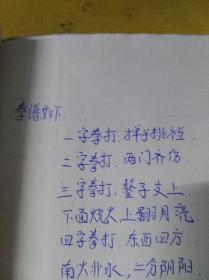 拳谱如下
一字拳打、拌手挑裆
二字拳打、两门齐伤
三字拳打、鏊子支上、
下面烧火上翻月亮、
四字拳打、东西四方
南火北水、二分阴阳、